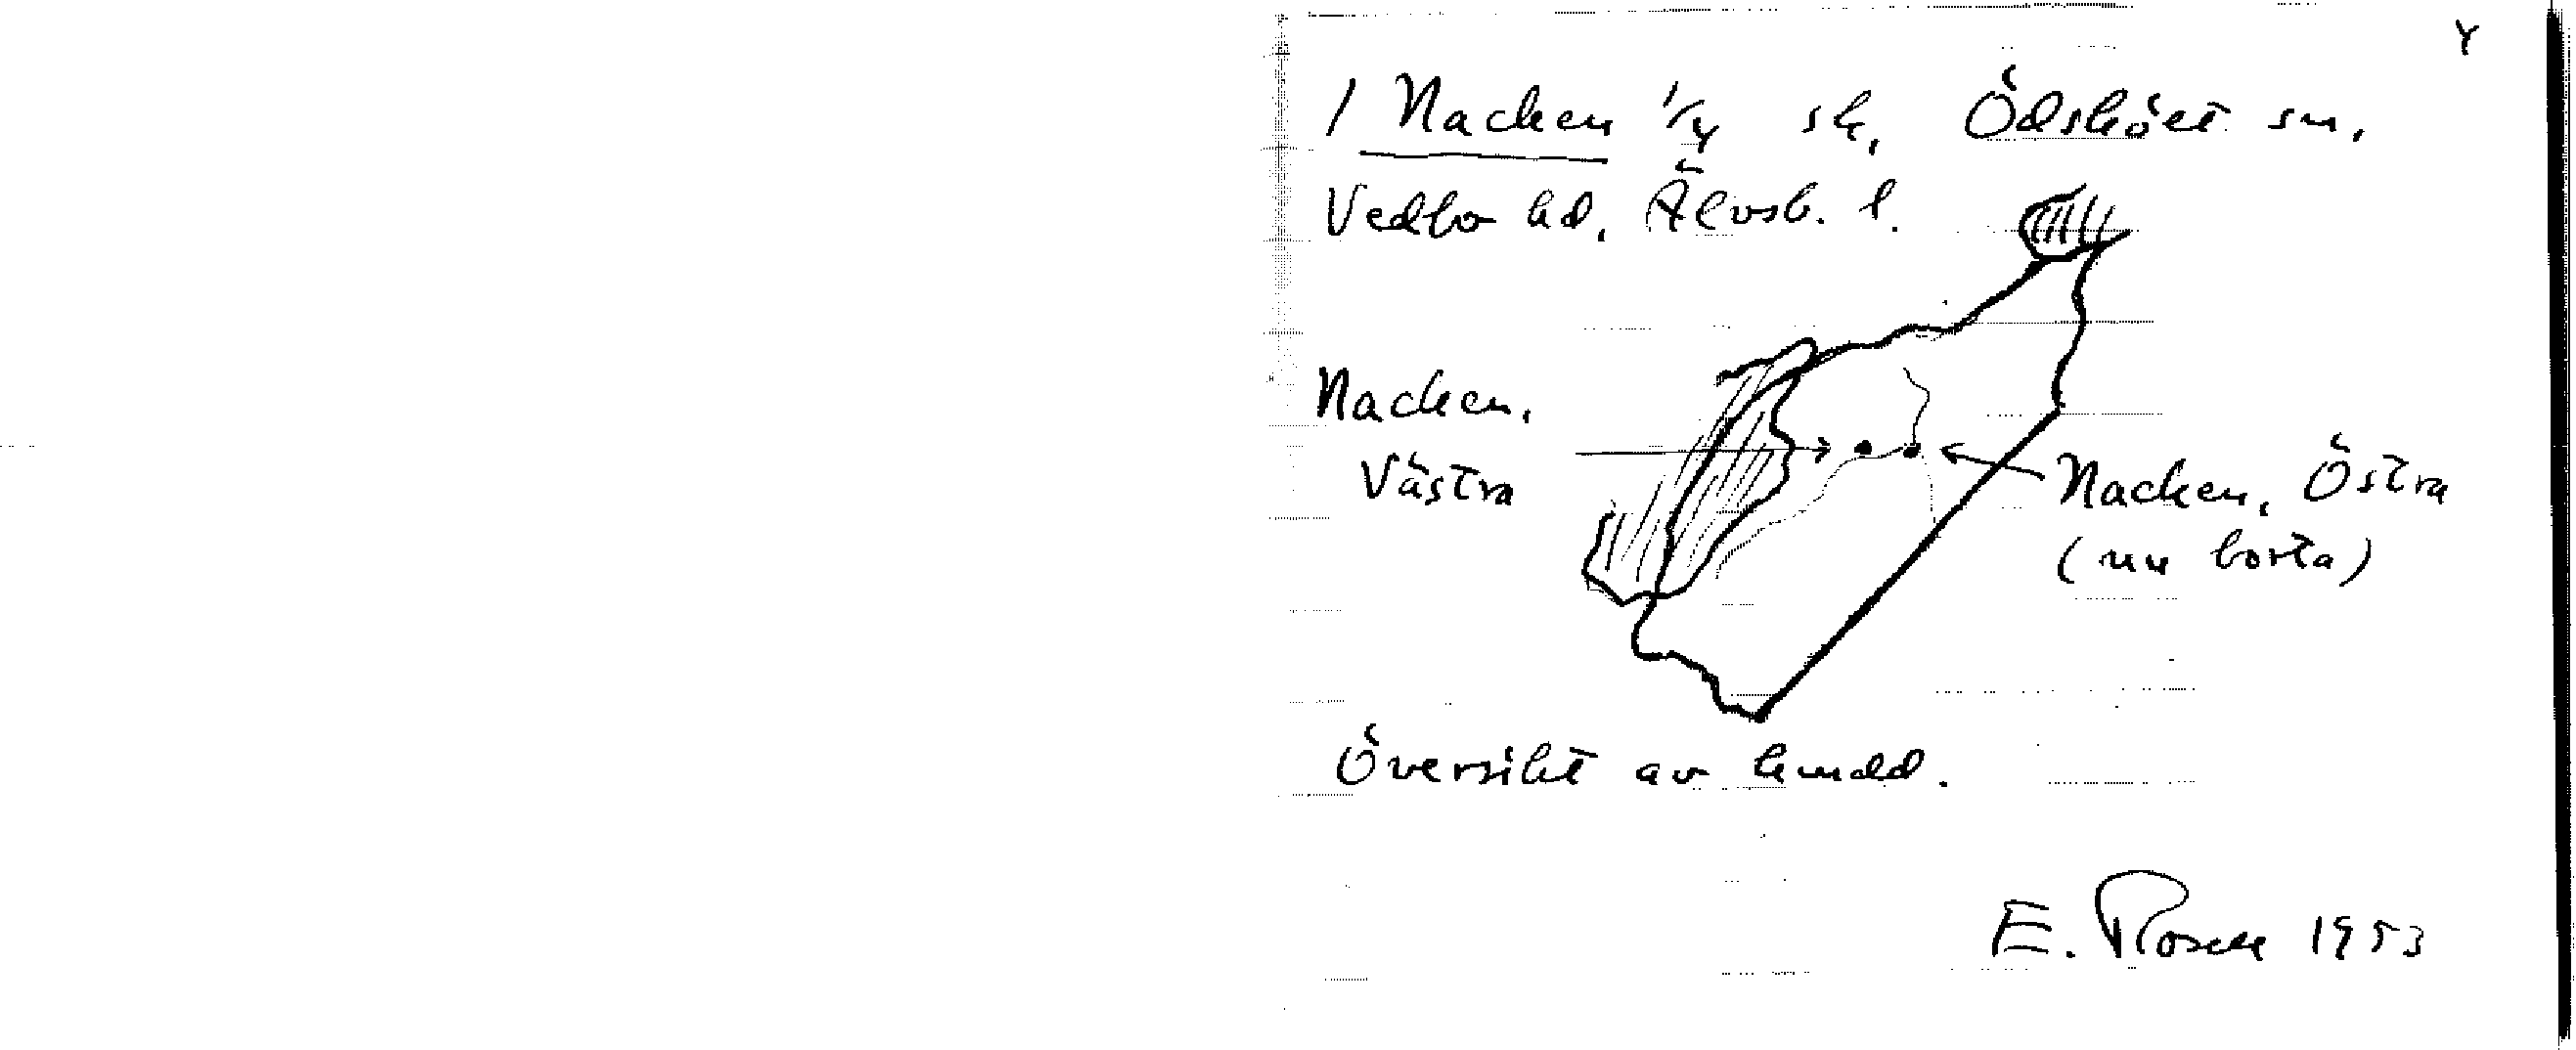 Y
1 Nacken 1/4 sk. Ödsköĺt sn.
Vedbo hd. Älvsb. l.
Nacken,
Västra
Nacken, Östra
(nu borta)
Översikt av hmdd.
E. Rosell 1953